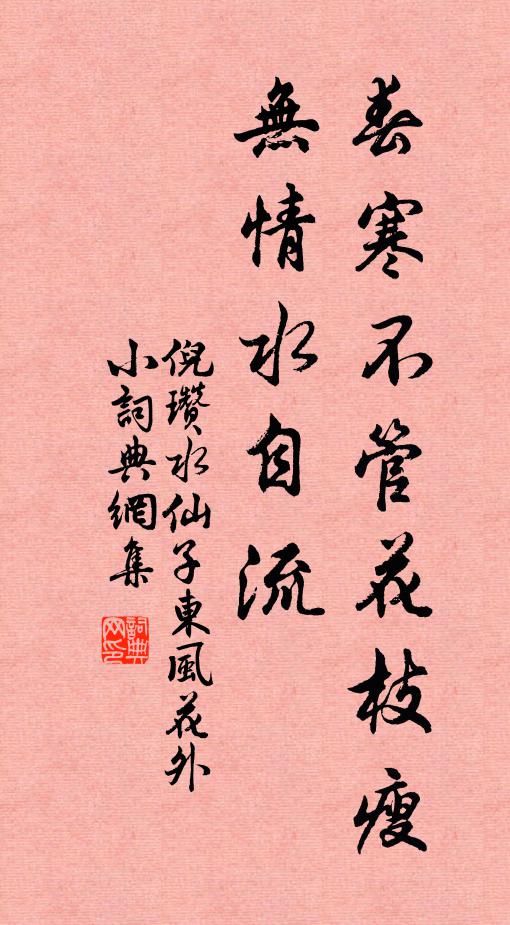 春寒不管花枝瘦
無情水自流
倪瓚水仙子東風花外
小詞典網集
詞典
网印